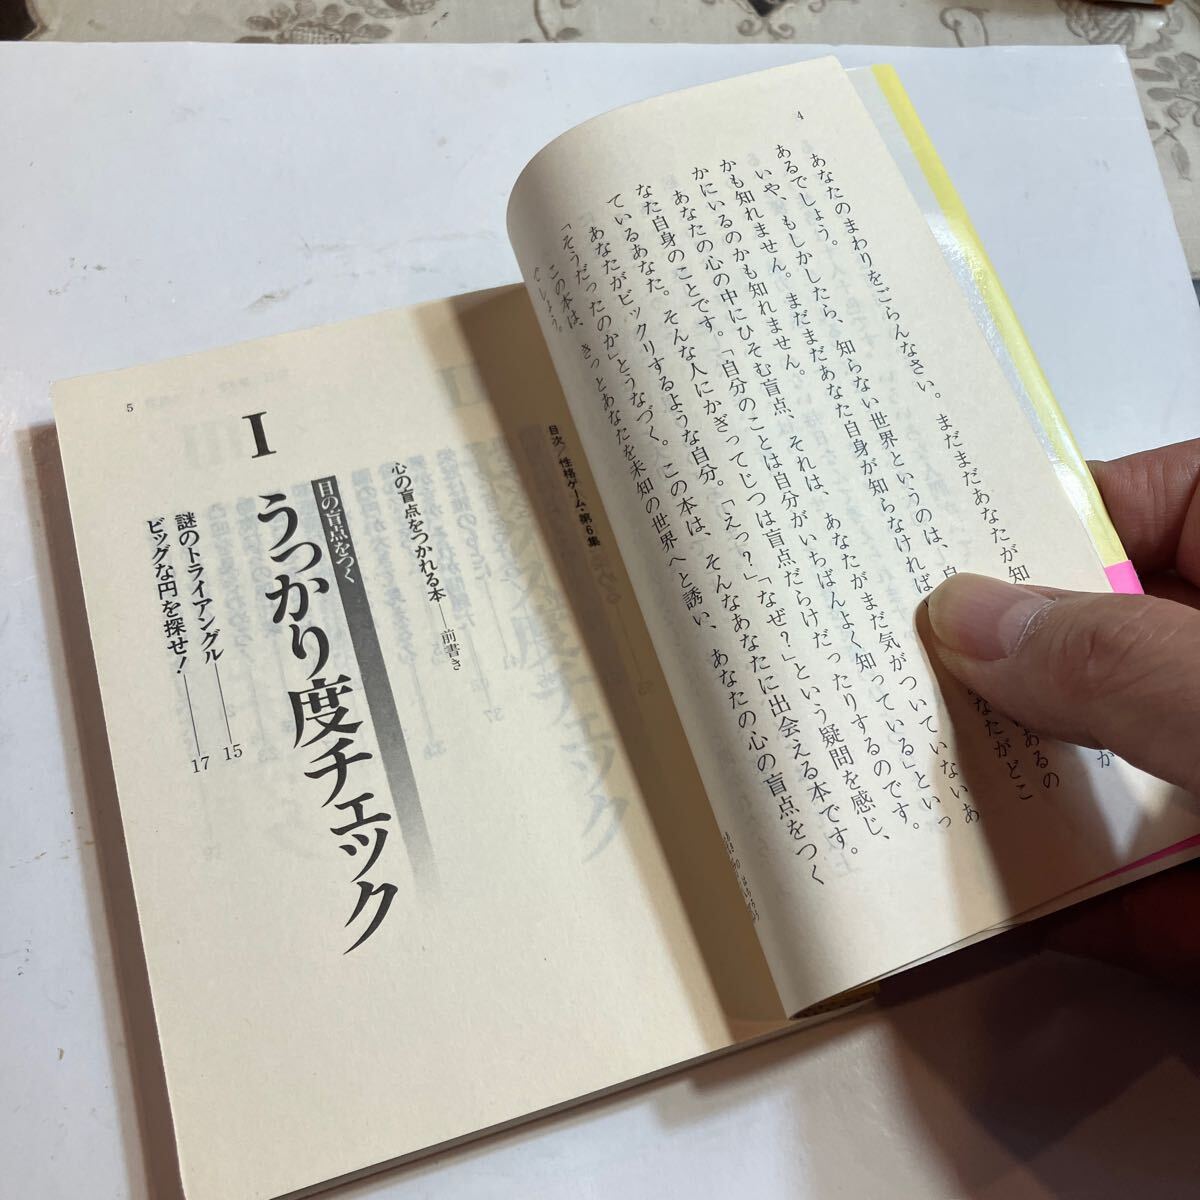 4
あなたのまわりをごらんなさい。まだまだあなたが知
あるでしょう。
いや、もしかしたら、知らない世界というのは、自
かも知れません。まだまだあなた自身が知らなければ
かにいるのかも知れません。
あなたの心の中にひそむ盲点、それは、あなたがまだ気がついていないあ
なた自身のことです。「自分のことは自分がいちばんよく知っている」といっ
ているあなた。そんな人にかぎってじつは盲点だらけだったりするのです。
あなたがビックリするような自分。「えっ?」「なぜ?」という疑問を感じ、
「そうだったのか」とうなづく。この本は、そんなあなたに出会える本です。
この本は、きっとあなたを未知の世界へと誘い、あなたの心の盲点をつく
でしょう。
目次/性格ゲーム・第6集
心の盲点をつかれる本——前書き
目の盲点をつく
I うっかり度チェック
謎のトライアングル——15
ビッグな円を探せ!——17
5